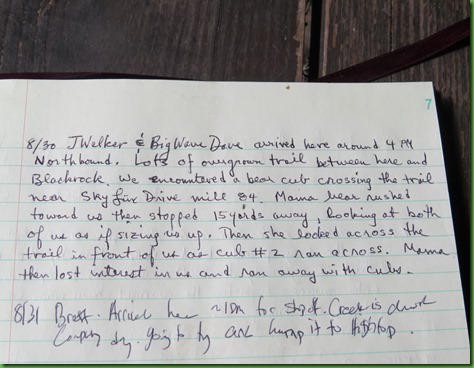 7
8/30 JWalker & Big Wave Dave arrived here around 4 PM
Northbound. Lots of overgrown trail between here and
Blackrock. We encountered a bear cub crossing the trail
near Skyline Drive mile 84. Mama bear rushed
toward us then stopped 15 yards away, looking at both
of us as if sizing us up. Then she looked across the
trail in front of us as cub #2 ran across. Mama
then lost interest in us and ran away with cubs.
8/31 Arrived here for Creek is
dry. going to try and hump it to Hightop.